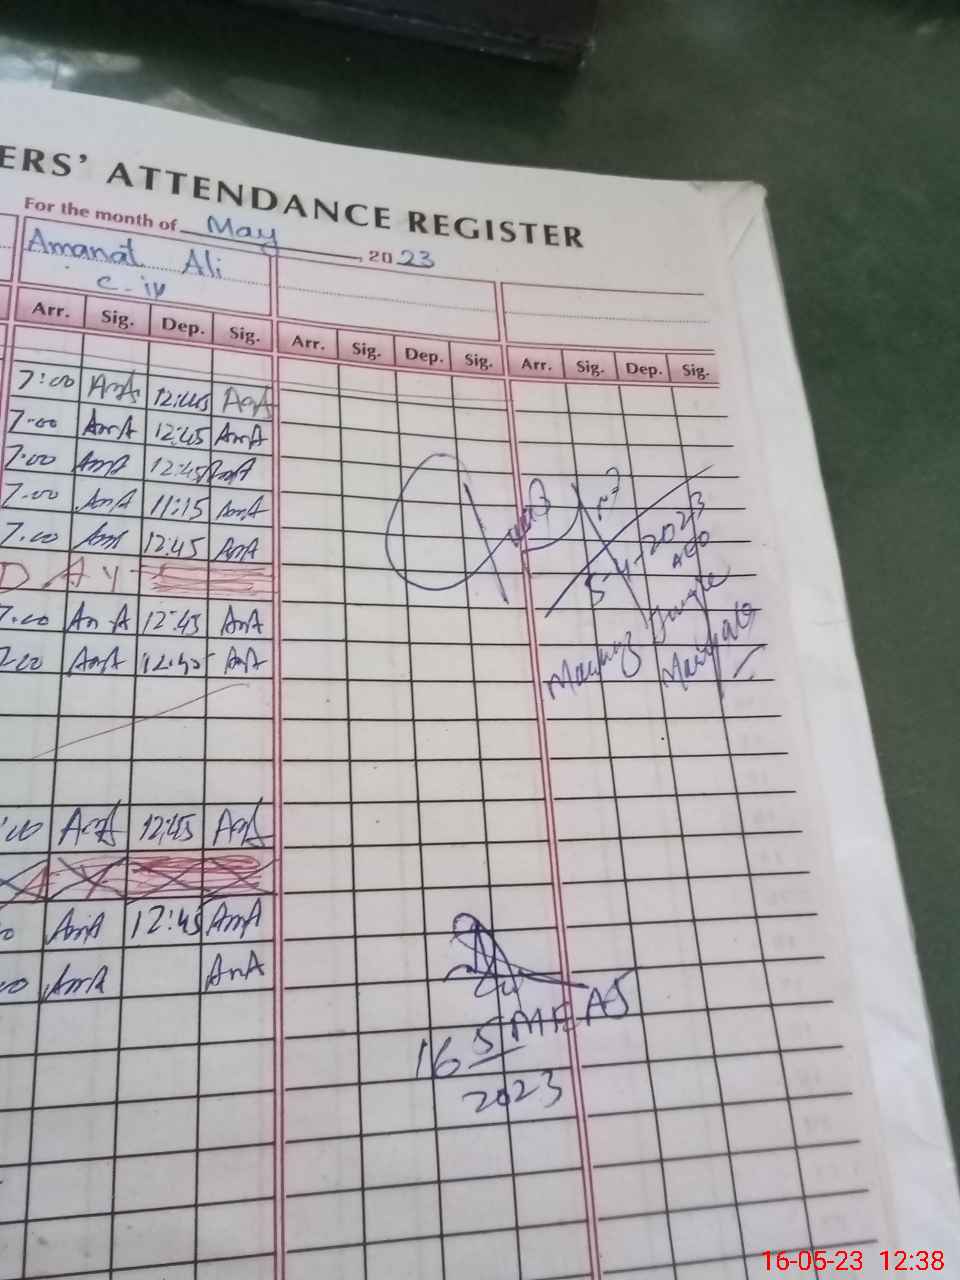 ERS' ATTENDANCE REGISTER
For the month of May, 2023
Amanat Ali
C. iv
Arr. Sig. Dep. Sig. Arr. Sig. Dep. Sig. Arr. Sig. Dep. Sig.
7:00 AmA 12:45 AmA
7.00 AmA 12:45 AmA
7.00 AmA 12:45 AmA
7.00 AmA 11:15 AmA
7.00 AmA 12:45 AmA
D A Y
7.00 AmA 12:45 AmA
7.00 AmA 12:45 AmA
:00 AmA 12:45 AmA
AmA 12:45 AmA
AmA AmA
5-4-2023
AEO
16 5
2023
16-05-23 12:38